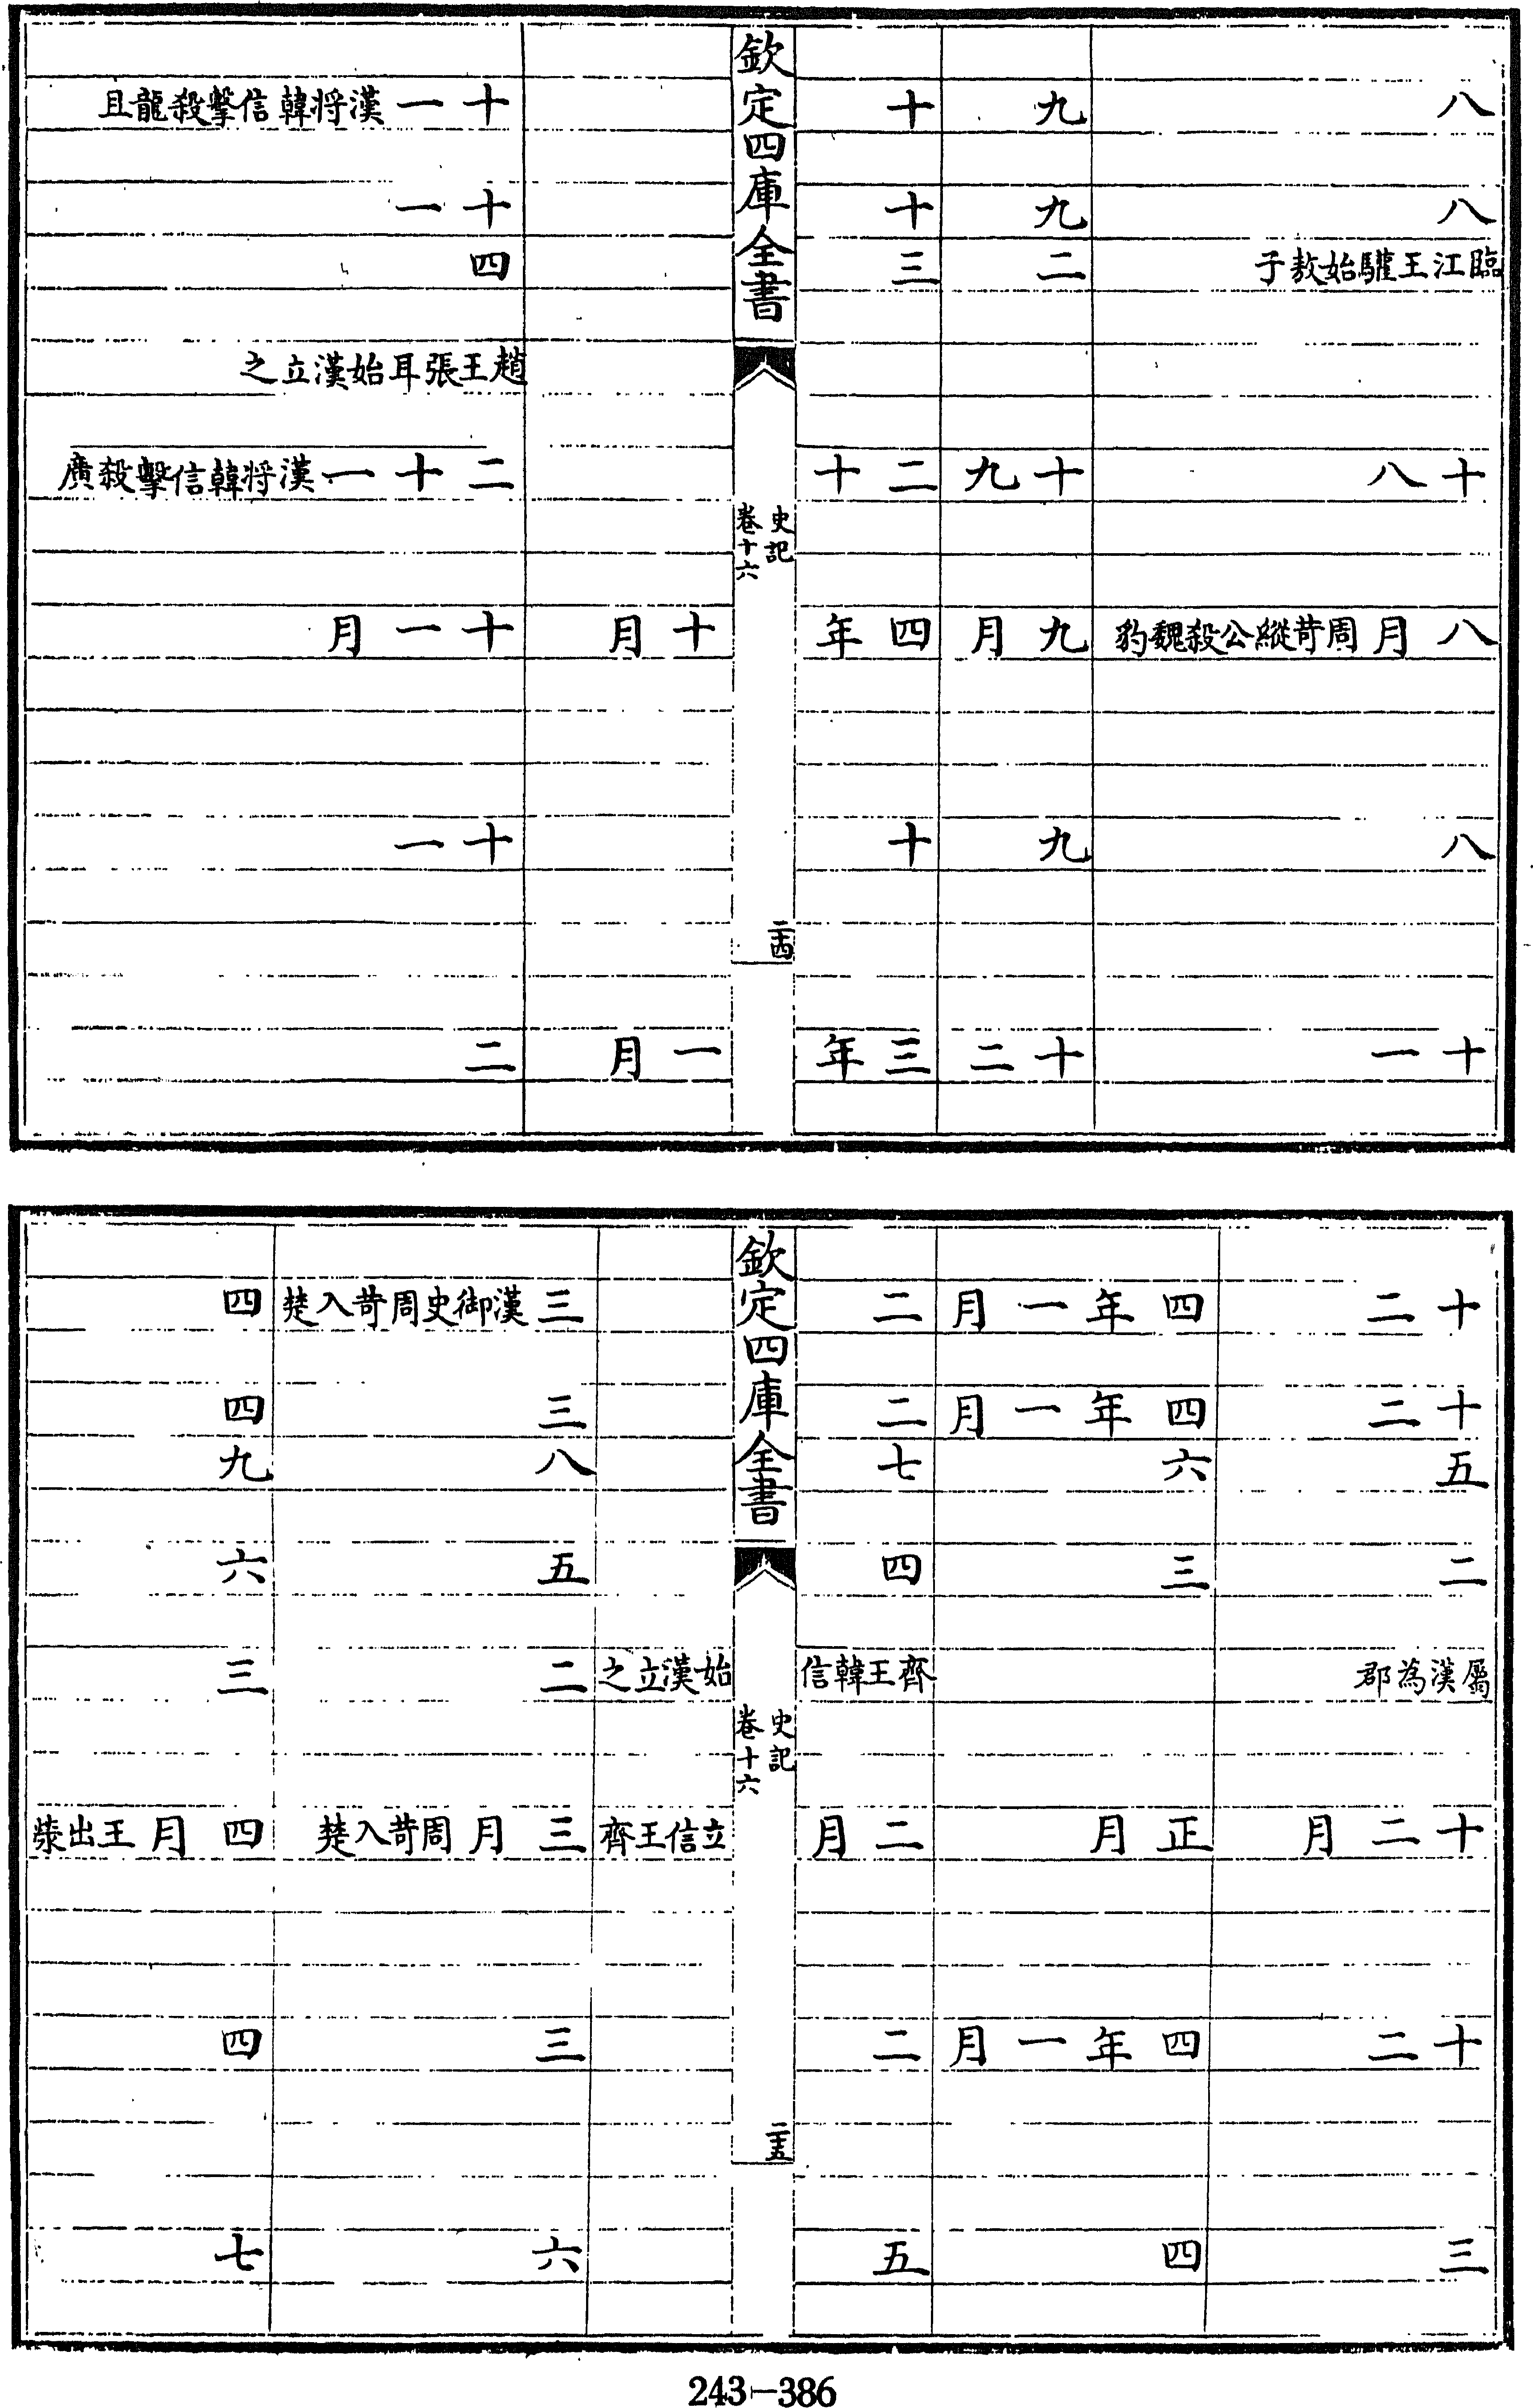 八　九　十　十一漢將韓信擊殺龍且
八　九　十　十一
臨江王驩始敖子　二　三　四
趙王張耳始漢立之
十八　十九　二十　二十一漢將韓信擊殺廣
八月周苛縱公殺魏豹　九月　四年十月　十一月
八　九　十　十一
十一　十二　三年一月　二
欽定四庫全書
史記
卷十六
二十四
十二　四年一月　二　三漢御史周苛入楚　四
十二　四年一月　二　三　四
五　六　七　八　九
二　三　四　五　六
屬漢為郡　齊王韓信始漢立之　二　三
十二月　正月　二月立信王齊　三月周苛入楚　四月王出滎
十二　四年一月　二　三　四
三　四　五　六　七
欽定四庫全書
史記
卷十六
二十五
243-386